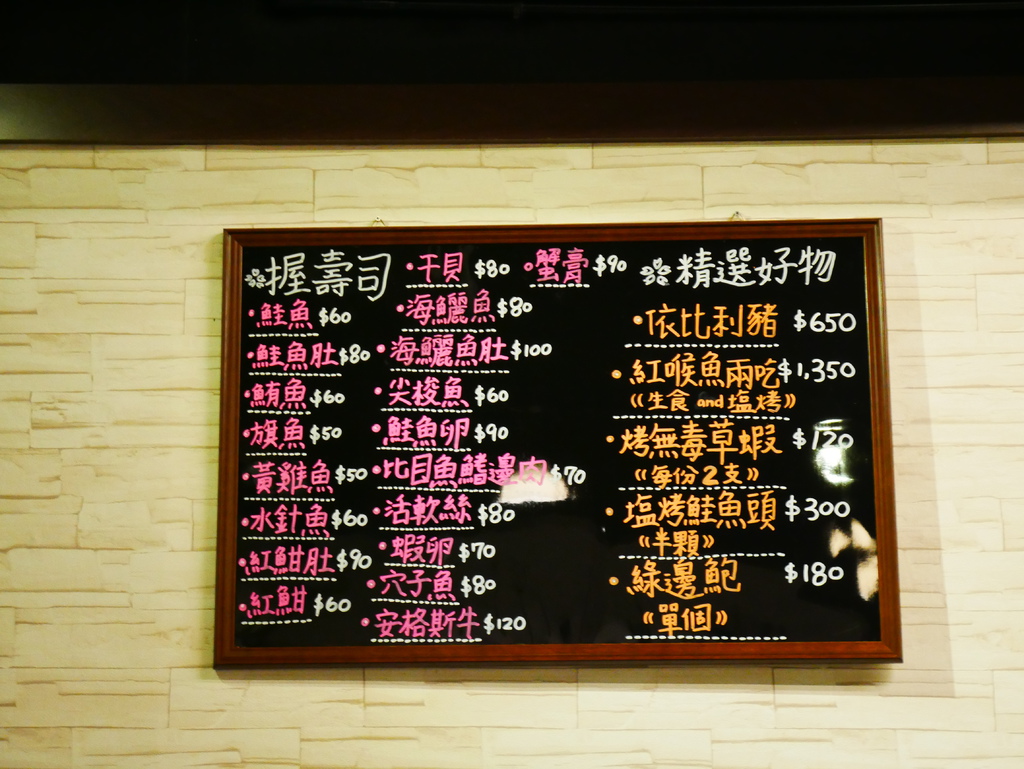 握壽司
・鮭魚 $60
・鮭魚肚 $80
・鮪魚 $60
・旗魚 $50
・黃雞魚 $50
・水針魚 $60
・紅魽肚 $90
・紅魽 $60
・干貝 $80
・海鱺魚 $80
・海鱺魚肚 $100
・尖梭魚 $60
・鮭魚卵 $90
・比目魚鰭邊肉 $70
・活軟絲 $80
・蝦卵 $70
・穴子魚 $80
・安格斯牛 $120
・蟹膏 $90
精選好物
・依比利豬 $650
・紅喉魚兩吃 $1,350
《生食 and 塩烤》
・烤無毒草蝦 $120
《每份2支》
・塩烤鮭魚頭 $300
《半顆》
・綠邊鮑 $180
《單個》